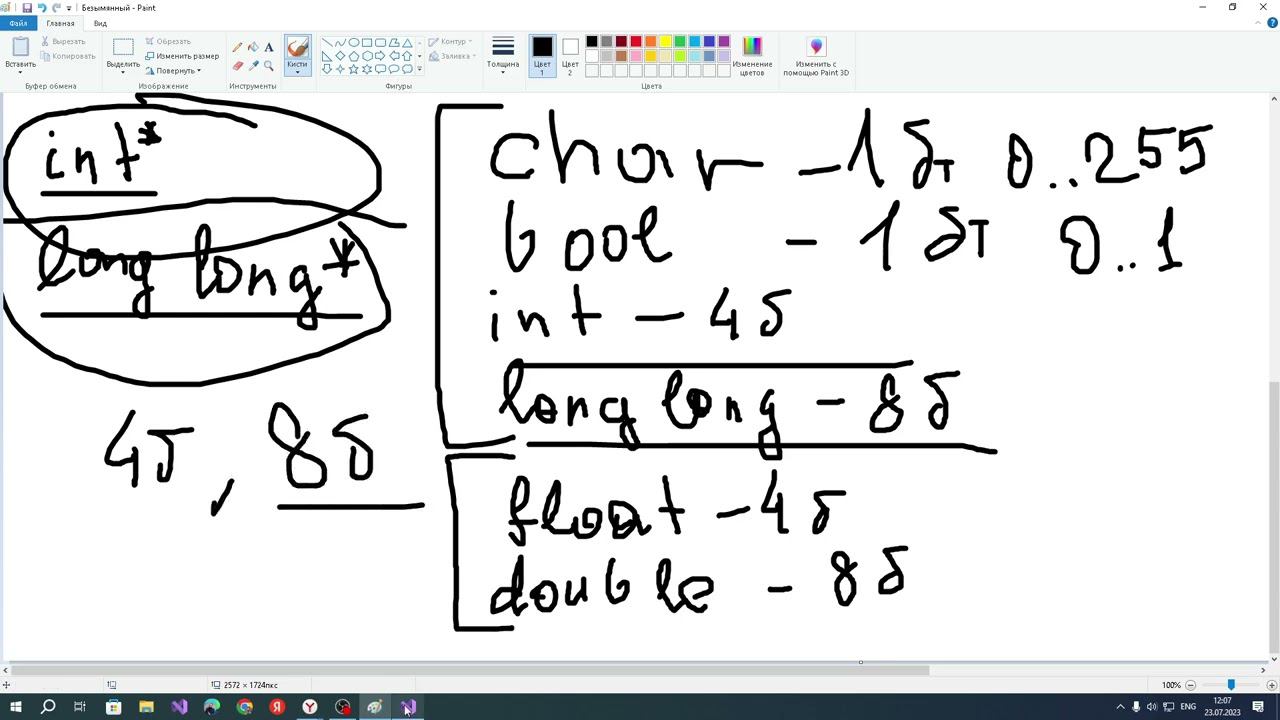 Безымянный - Paint
Файл Главная Вид
Вставить
Вырезать
Копировать
Буфер обмена
Выделить
Обрезать
Изменить размер
Повернуть
Изображение
Инструменты
Кисти
Контур
Заливка
Фигуры
Толщина
Цвет 1
Цвет 2
Изменение цветов
Цвета
Изменить с помощью Paint 3D
int*
long long*
4б, 8б
char - 1 бт 0..255
bool - 1 бт 0..1
int - 4б
long long - 8б
float - 4б
double - 8б
2572 × 1724пкс
100%
ENG
12:07
23.07.2023